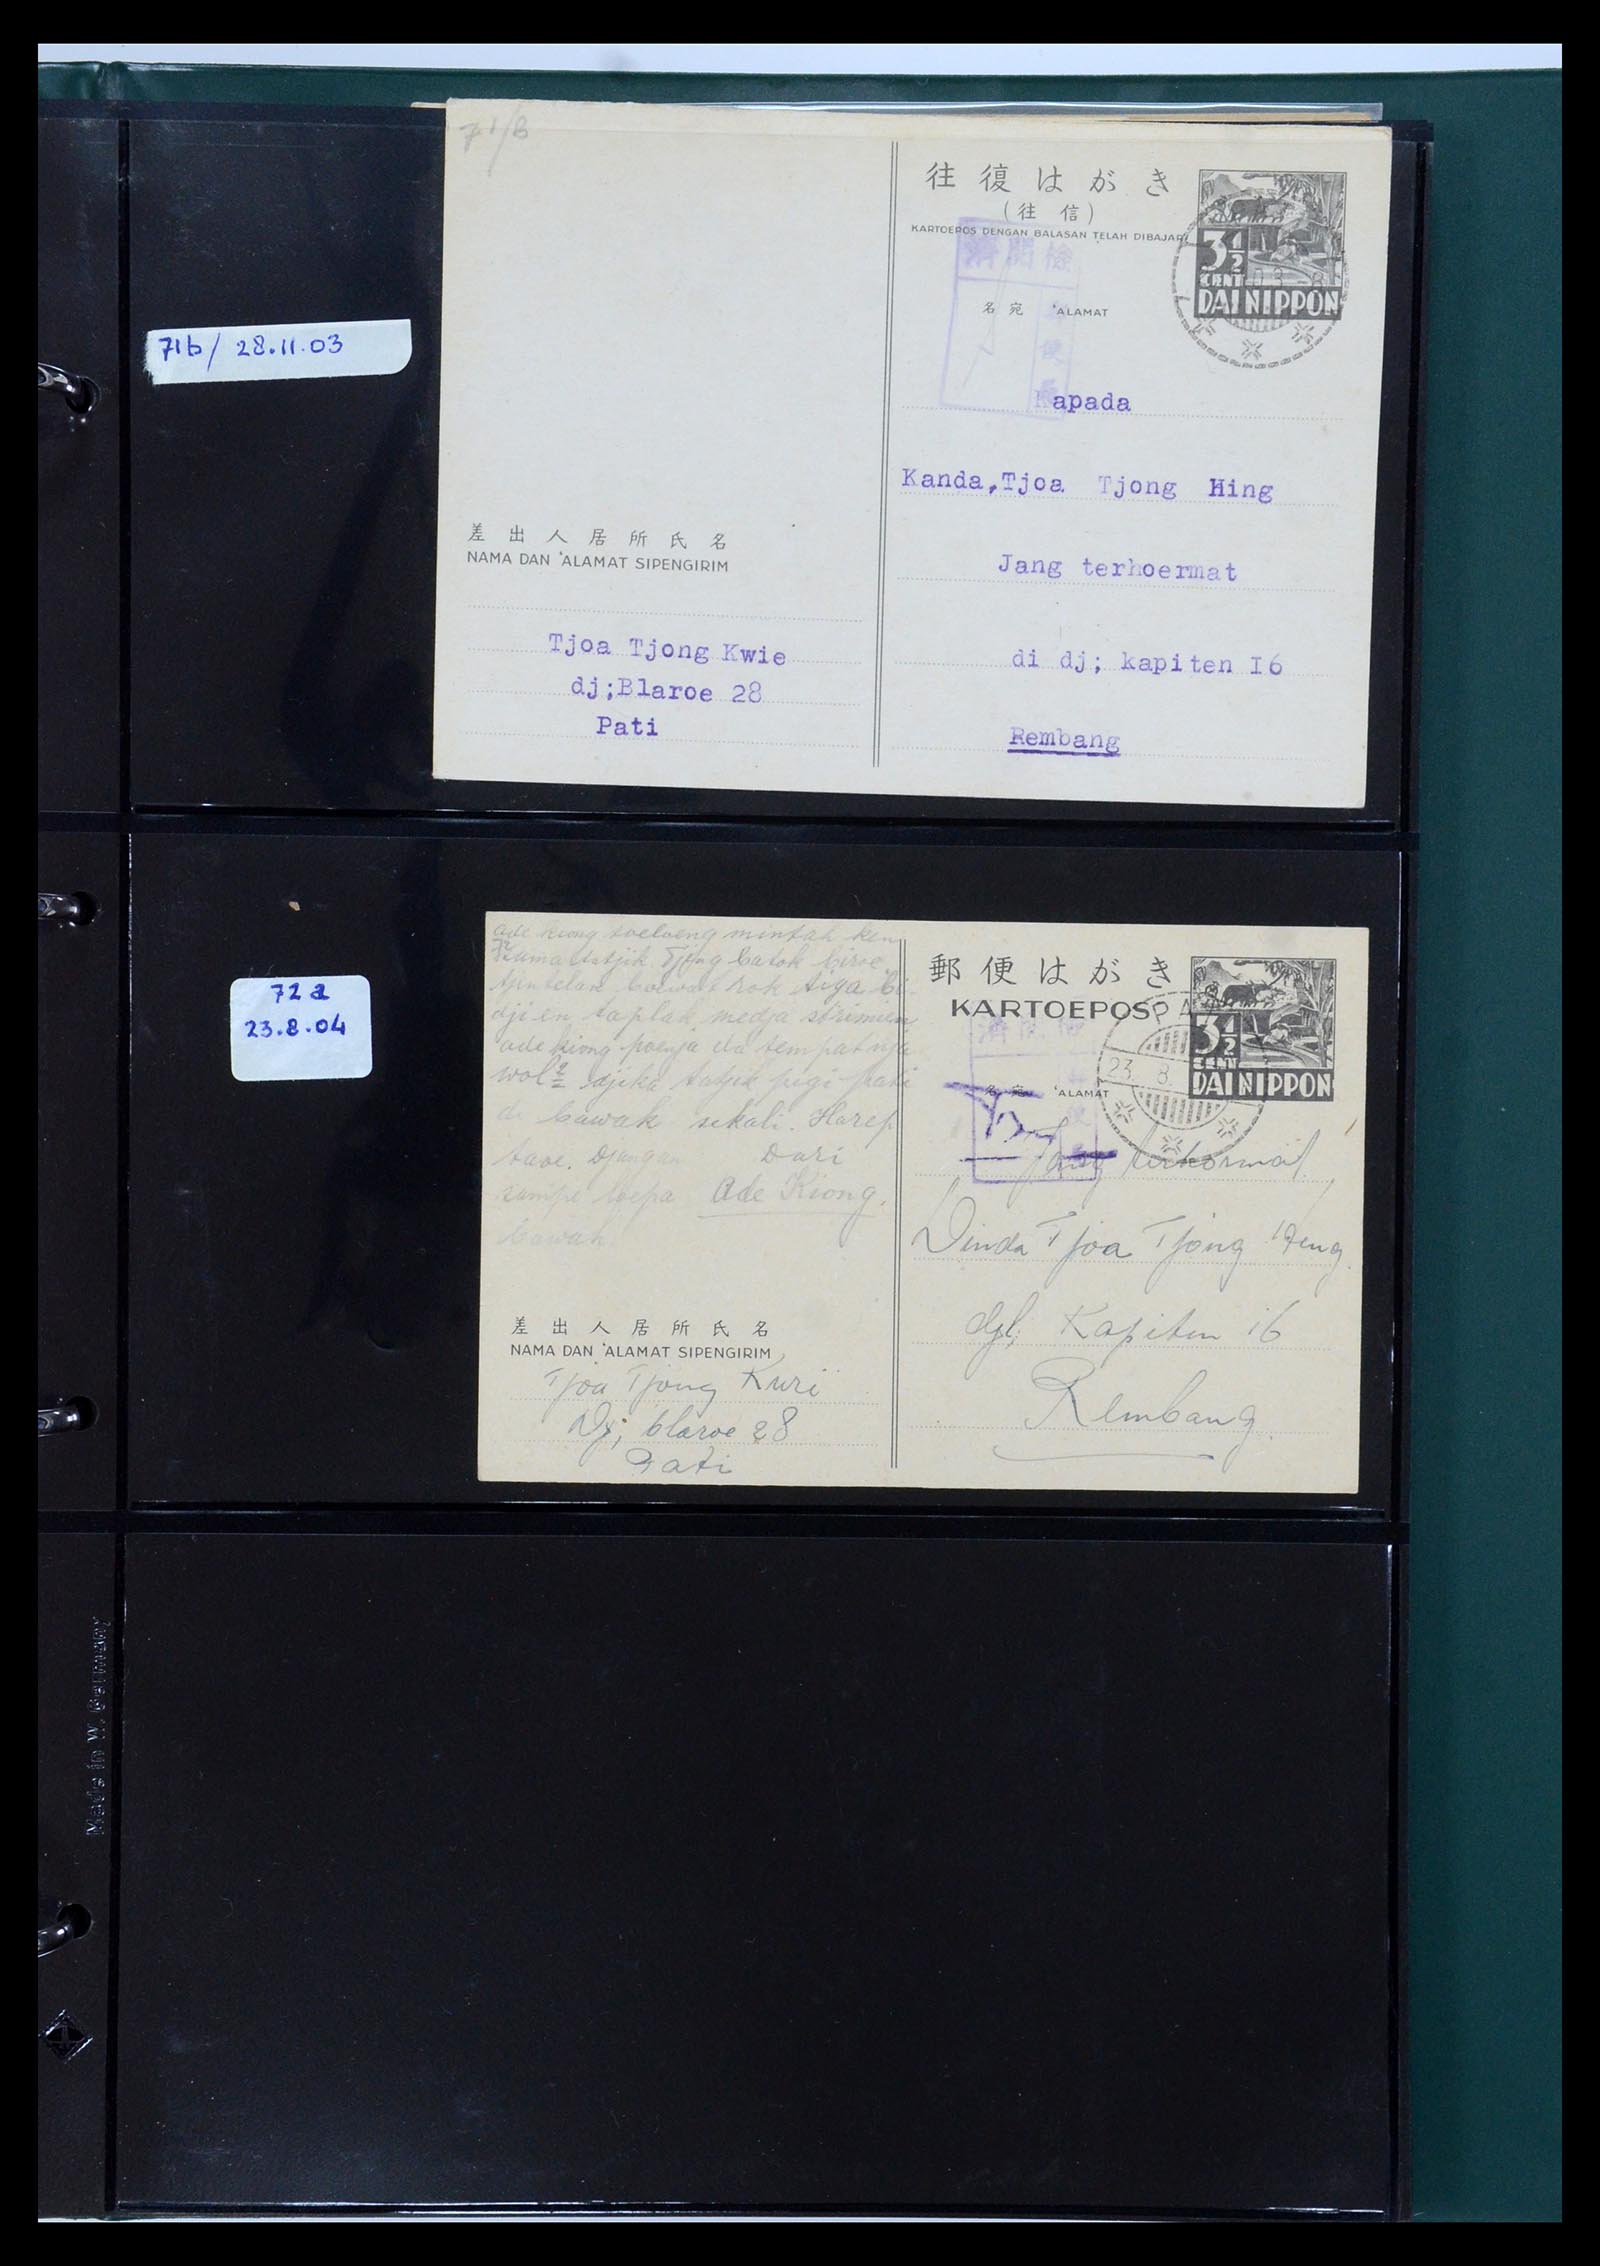 71/B
往復はがき
(往信)
KARTOEPOS DENGAN BALASAN TELAH DIBAJAR
3½
CENT
DAI NIPPON
03 8
濟閲檢
便
名宛 'ALAMAT
71b / 28.11.03
Kapada
Kanda,Tjoa Tjong Hing
Jang terhoermat
di dj; kapiten I6
Rembang
差出人居所氏名
NAMA DAN 'ALAMAT SIPENGIRIM
Tjoa Tjong Kwie
dj;Blaroe 28
Pati
72a
23.8.04
ade kiong toeloeng mintah
Tjong batok biroe
rok tiga bi-
dji en taplak medja strimien
ade kiong poenja da tempatnja
wol2 djika tatjik pigi pati
di bawak sekali. Harep
taoe. Djangan Dari
sampe loepa Ade Kiong.
bawak
郵便はがき
KARTOEPOS
PA
3½
CENT
DAI NIPPON
23. 8.
濟閲
便
名宛 'ALAMAT
Jang terhormat
Dinda Tjoa Tjong Heng
djl; Kapiten 16
Rembang.
差出人居所氏名
NAMA DAN 'ALAMAT SIPENGIRIM
Tjoa Tjong Kwi
Dj; blaroe 28
Pati
Made in W. Germany